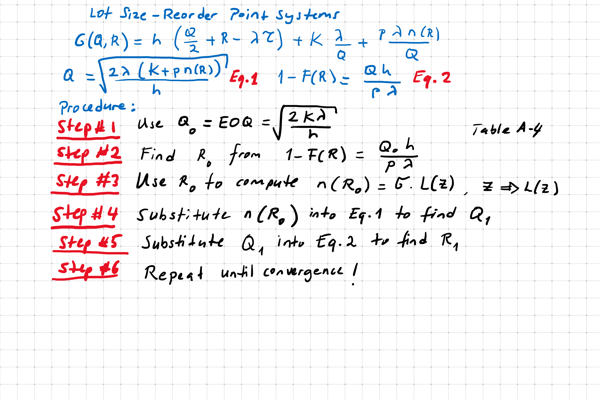 Lot Size-Reorder Point Systems
G(Q,R) = h (Q/2 + R - λτ) + K λ/Q + pλn(R)/Q
Q = √(2λ(K+pn(R))/h) Eq.1 1-F(R) = Qh/pλ Eq.2
Procedure:
Step#1 Use Q₀ = EOQ = √(2Kλ/h) Table A-4
Step#2 Find R₀ from 1-F(R) = Q₀h/pλ
Step#3 Use R₀ to compute n(R₀) = σ.L(z), z ⇒ L(z)
Step#4 Substitute n(R₀) into Eq.1 to find Q₁
Step#5 Substitute Q₁ into Eq.2 to find R₁
Step#6 Repeat until convergence!